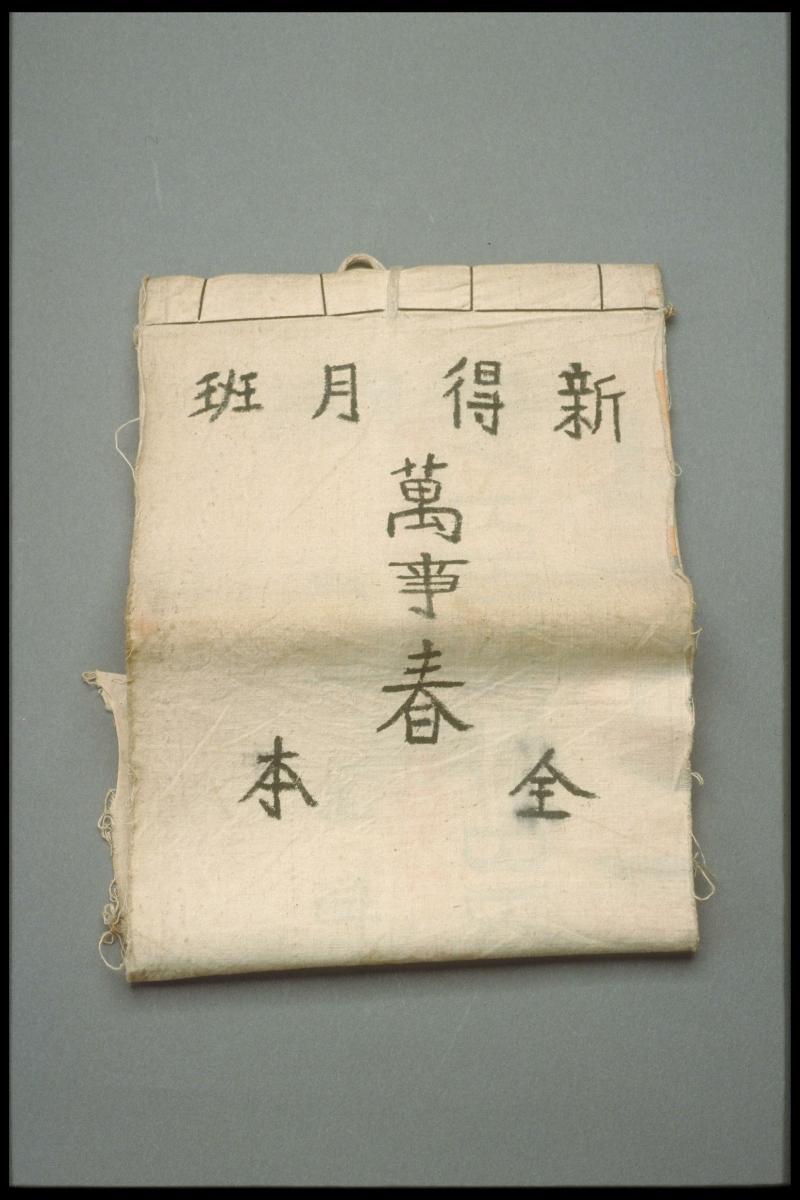 新得月班
萬事春
全本